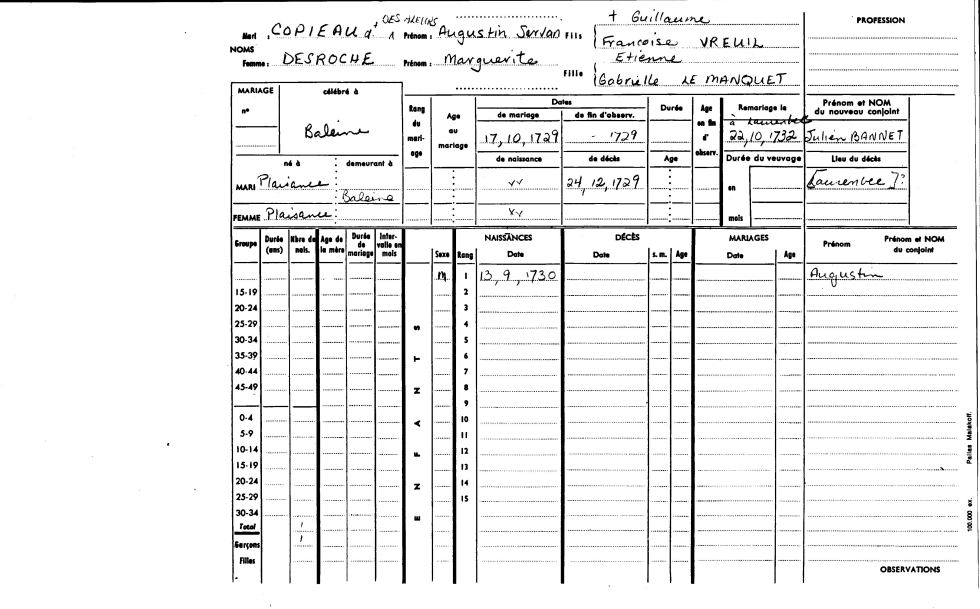 + Guillaume
PROFESSION
Mari : COPIEAU d. Prénom : Augustin Servan Fils Françoise VREUIL
NOMS
Etienne
Femme : DESROCHE Prénom : Marguerite
Fille Gabrielle LE MANQUET
MARIAGE célébré à
n°
Baleine
Rang du mari- age
Age au mariage
Dates
de mariage de fin d'observ.
17, 10, 1729 - 1729
Durée
Age en fin d' observ.
Remariage le
22, 10, 1732
Prénom et NOM du nouveau conjoint
Julien BANNET
né à demeurant à
de naissance de décès Age
Durée du veuvage
Lieu du décès
MARI Plaisance Baleine
24, 12, 1729
en
[Laurenbec]?
FEMME Plaisance
mois
Groupe Durée (ans) Nbre de nais. Age de la mère Durée de mariage Inter- valle en mois
Sexe Rang
NAISSANCES Date
DÉCÈS Date s. m. Age
MARIAGES Date Age
Prénom
Prénom et NOM du conjoint
M 1 13, 9, 1730 Augustin
15-19 2
20-24 3
25-29 4
30-34 5
35-39 6
40-44 7
45-49 8
9
0-4 10
5-9 11
10-14 12
15-19 13
20-24 14
25-29 15
30-34
ENFANTS
Total 1
Garçons 1
Filles
OBSERVATIONS
100.000 ex. Pallas Malakoff.